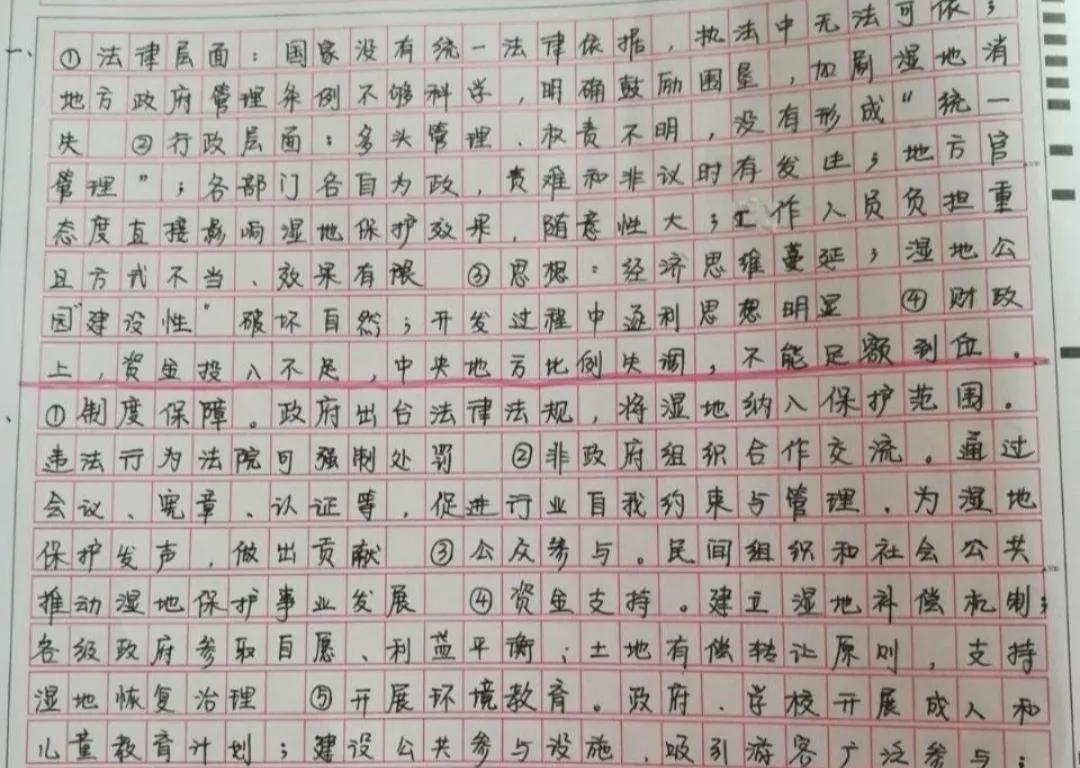 一、①法律层面：国家没有统一法律依据，执法中无法可依；
地方政府管理条例不够科学，明确鼓励围垦，加剧湿地消
失 ②行政层面：多头管理、权责不明，没有形成“统一
管理”；各部门各自为政，责难和非议时有发生；地方官
态度直接影响湿地保护效果，随意性大；工作人员负担重
且方式不当、效果有限 ③思想：经济思维蔓延；湿地公
园“建设性”破坏自然；开发过程中逐利思想明显 ④财政
上，资金投入不足，中央地方比例失调，不能足额到位。
、①制度保障。政府出台法律法规，将湿地纳入保护范围。
违法行为法院可强制处罚 ②非政府组织合作交流。通过
会议、宪章、认证等，促进行业自我约束与管理，为湿地
保护发声，做出贡献 ③公众参与。民间组织和社会公共
推动湿地保护事业发展 ④资金支持。建立湿地补偿机制；
各级政府参取自愿、利益平衡；土地有偿转让原则，支持
湿地恢复治理 ⑤开展环境教育。政府、学校开展成人和
儿童教育计划；建设公共参与设施，吸引游客广泛参与；